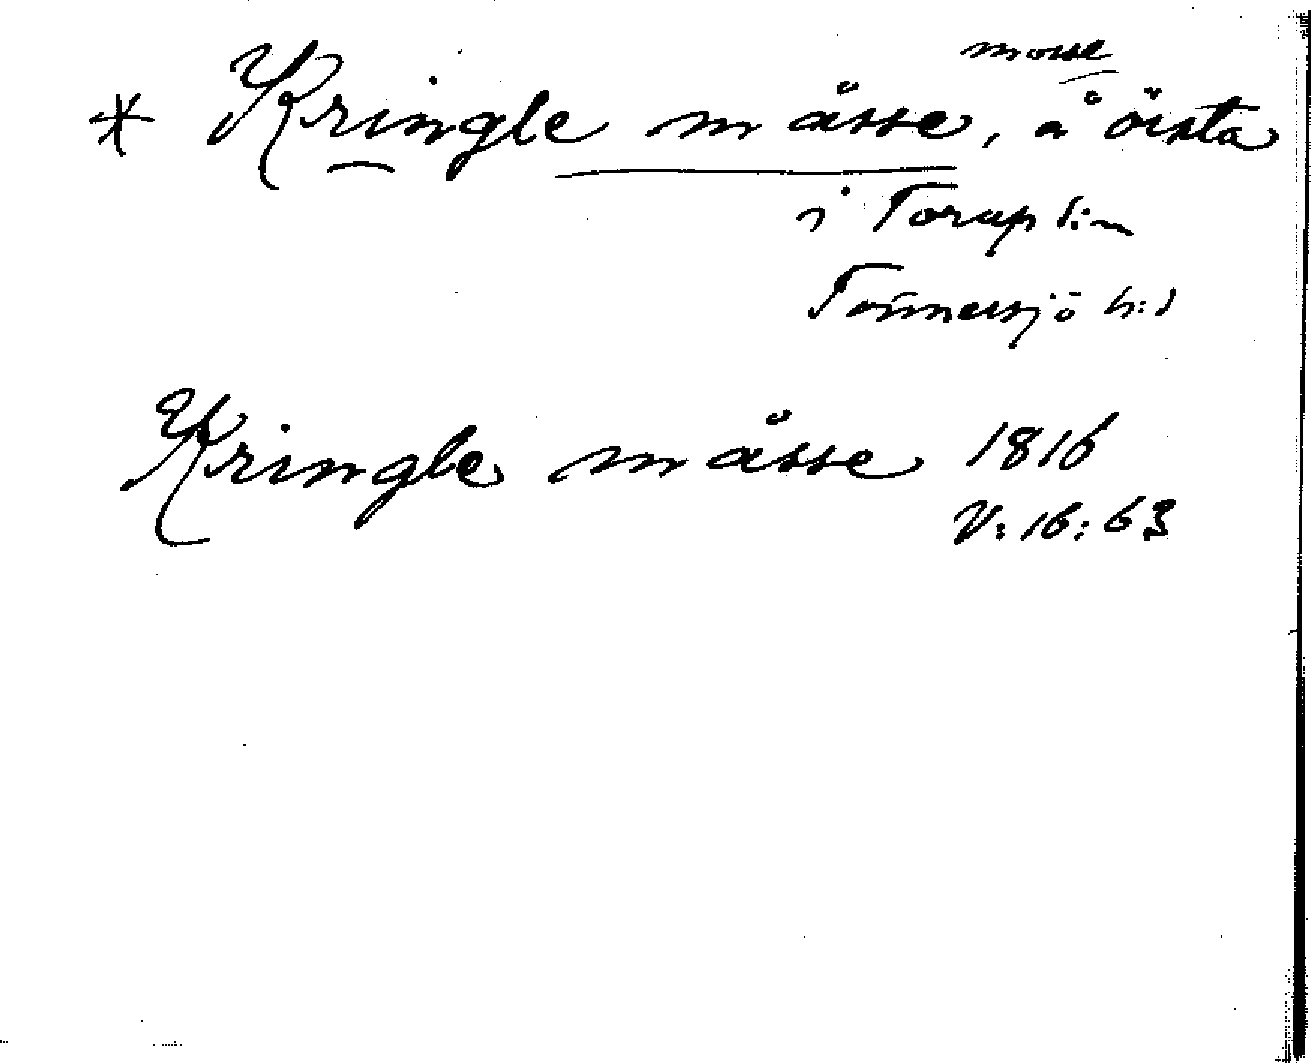 mosse
* Kringle måsse, å örsta
i Torup s:n
Tönnersjö h:d
Kringle måsse 1816
V: 16: 63